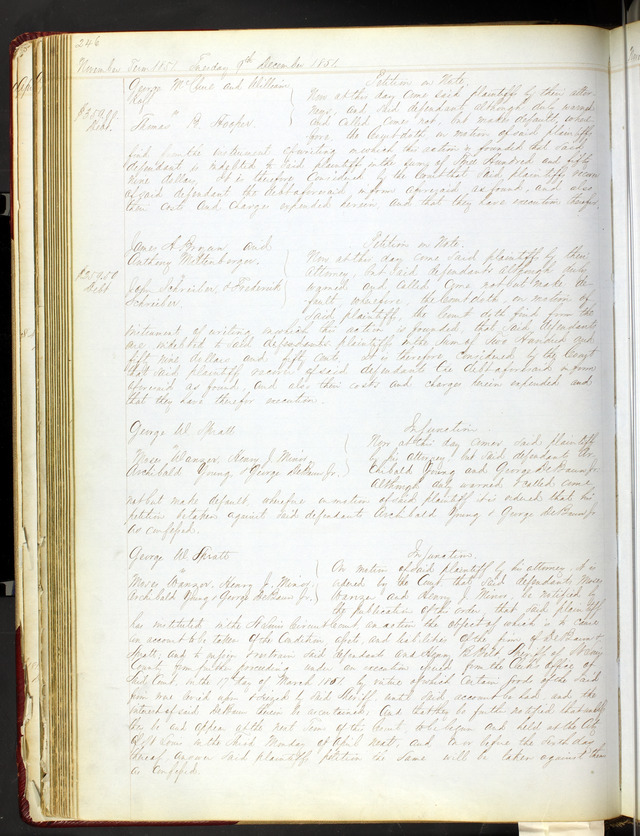 246
November Term 1851 Tuesday 9th December 1851
George McCune and William
Petition in Note
Now at this day come said plaintiffs by their attor-
ney, and said defendant although duly warned
$359.00
Debt.
Thomas H. Hooper
and called come not, but makes default, where-
fore, the Court doth on motion of said plaintiffs
find from the instrument of writing on which this action is founded that said
defendant is indebted to said plaintiffs in the sum of Three Hundred and fifty
nine dollars. It is therefore Considered by the Court that said plaintiffs recover
of said defendant the debt aforesaid in form aforesaid as found, and also
their costs and charges herein expended and that they have execution therefor.
James H. Bryan and
Anthony Mittenberger.
Petition in Note.
Now at this day come said plaintiffs by their
attorney, but said defendants although duly
$259.50
Debt
John Schreiber & Frederick
Schreiber
warned and called come not but make de-
fault wherefore, the Court doth, on motion of
said plaintiffs, the Court doth find from the
instrument of writing on which this action is founded, that said defendants
are indebted to said plaintiffs in the sum of Two Hundred and
fifty nine dollars and fifty cents, it is therefore considered by the Court
that said plaintiffs recover of said defendants the debt aforesaid in form
aforesaid as found, and also their costs and charges herein expended and
that they have therefor execution.
George W. Spratt
Injunction.
Now at this day comes said plaintiff
Henry J. Minor
by his attorney, but said defendants Ar-
Archibald Young & George DeBaun Jr.
chibald Young and George DeBaun Jr.
although duly warned & called come
not but make default, wherefore on motion of said plaintiff it is ordered that his
petition be taken against said defendants Archibald Young & George DeBaun Jr
as confessed.
George W. Spratt
Injunction.
On motion of said plaintiff by his attorney, it is
Henry J. Minor
ordered by the Court that said defendants
Archibald Young & George DeBaun Jr.
and Henry J. Minor, be notified by
the publication of this order, that said plaintiff
has instituted in the Circuit Court an action the object of which is to cause
an account to be taken of the Condition effects and liabilities of the firm of DeBaun &
Spratt and to enjoin & restrain said defendants and Sheriff of
County from further proceeding under an execution issued from the Clerk's office of
said Court on the 17th day of March 1851 by virtue of which Certain goods of the said
firm were levied upon & seized by said Sheriff until said account be had, and the
interest of said DeBaun therein be ascertained. And that they be further notified that unless
they be and appear at the next Term of this Court, to be begun and held at the City
of St Louis on the third Monday of April next, and on or before the sixth day
thereof answer said plaintiff's petition the same will be taken against them
as confessed.